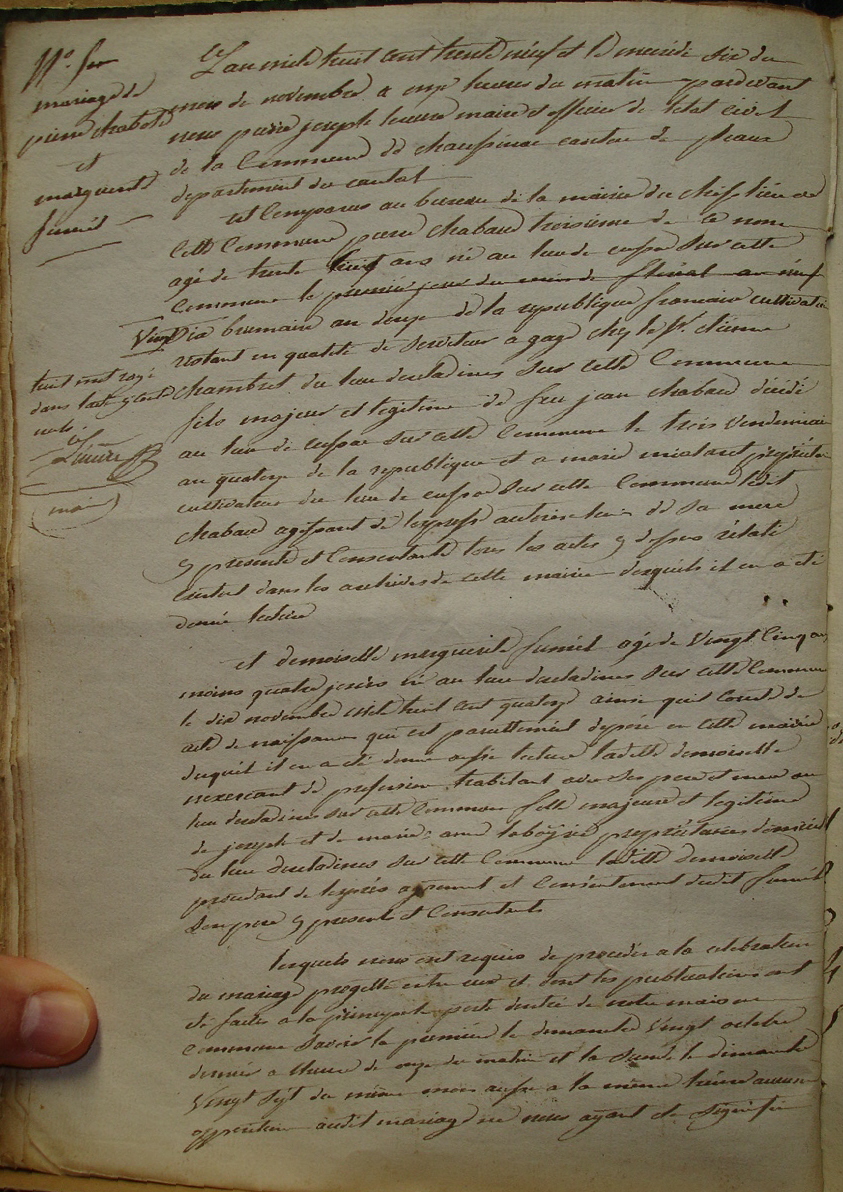 N°. Ser
mariage de
pierre chabaud
et
marguerite
fumel
L'an mille huit cent trente neuf et le mercredi six du
mois de novembre a onze heures du matin pardevant
nous pierre joseph maire et officier de l'etat civil
de la Commune de chaussenac canton de pleaux
departement du cantal
est Comparus au bureau de la mairie du chef lieu de
Cette Commune pierre chabaud troisieme de ce nom
agé de trente ans né au lieu de sur cette
Commune le premier jour du mois de floréal an neuf
Vingt Six brumaire an douze de la republique francaise cultivateur
restant en qualité de serviteur a gage chez le Sr. etienne
chambret du lieu descladines sur cette Commune
huit mot rayé
dans l'acte
nuls
maire
fils majeur et legitime de feu jean chabaud décédé
au lieu de sur cette Commune le trois Vendemiaire
an quatorze de la republique et a marie
cultivateur du lieu de sur cette Commune ledit
chabaud agissant de l'expres autorisation de Sa mere
y presente et Consentante tous les actes y dessus rélaté
existent dans les archives de cette mairie desquels il en a été
donné lecture
et demoiselle marguerite fumel agé de Vingt Cinq ans
moins quatre jours né au lieu descladines sur cette Commune
le dix novembre mille huit cent quatorze ainsi quil Conste de
acte de naissance qui est pareillement deposé en cette mairie
duquel il en a été donné aussi lecture ladite demoiselle
nexercant de profession habitant avec Ses pere et mere au
lieu descladines sur cette Commune fille majeure et legitime
de joseph et de marie anne propriétaires domiciliés
du lieu descladines sur cette Commune ladite demoiselle
procedant de l'exprès agrement et Consentement dudit fumel
Son pere y present et Consentant
lesquels nous ont requis de proceder a la celebration
du mariage progetté entre eux et dont les publications ont
été faites a la principale porte d'entrée de notre maison
Commune Savoir la première le dimanche Vingt octobre
dernier a lheure de onze du matin et la Seconde le dimanche
Vingt Sept du même mois aussi a la même heure aucune
opposition audit mariage ne nous ayant été Signifié